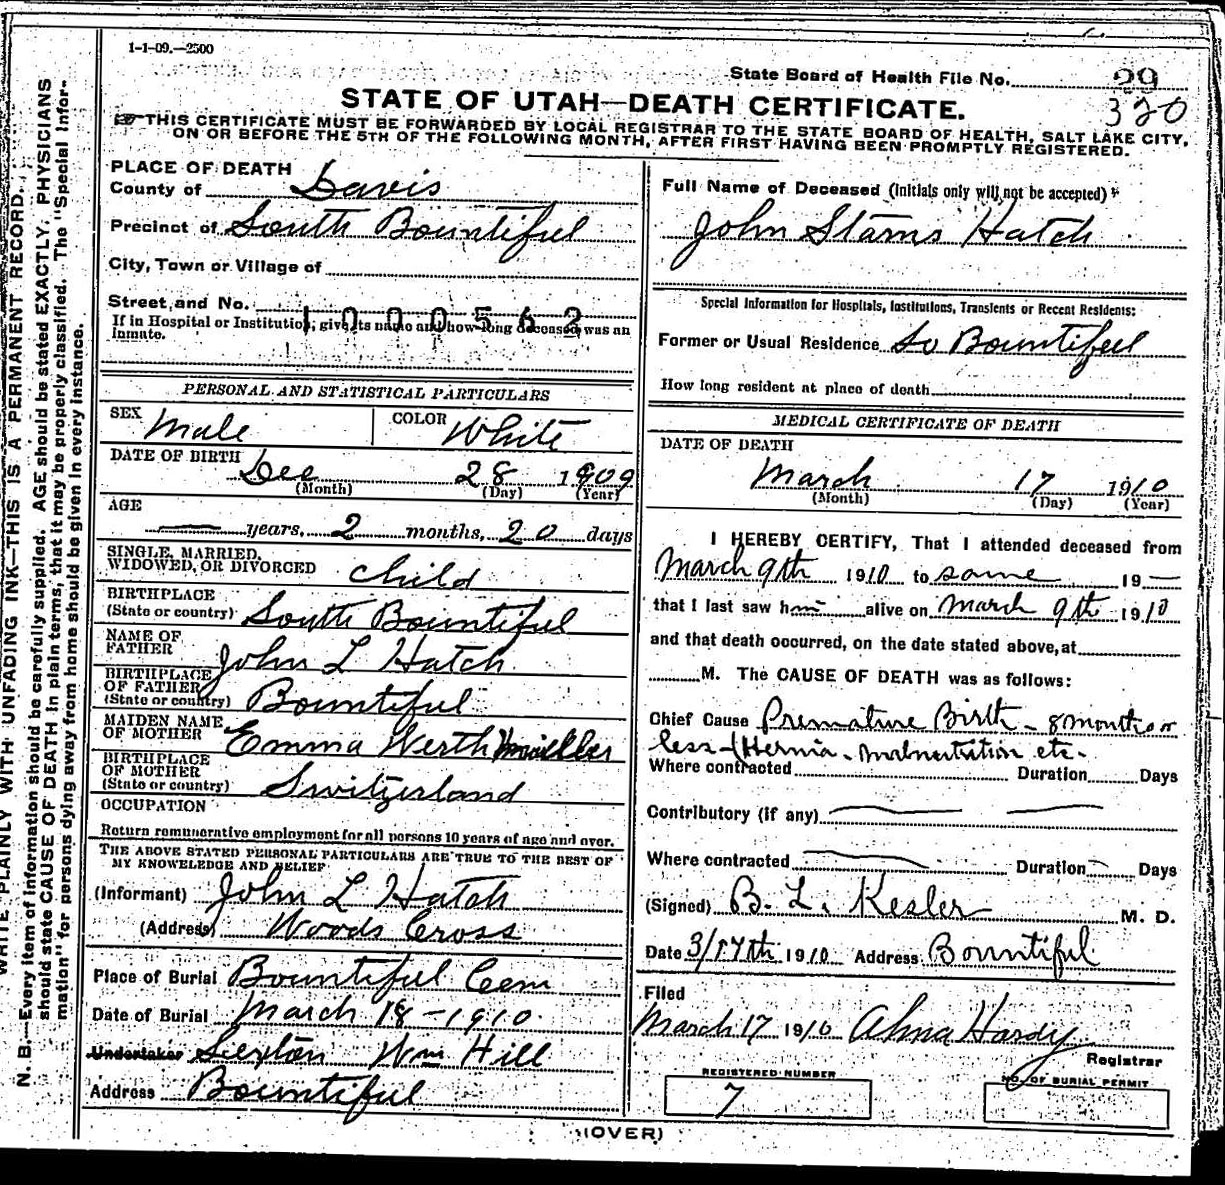 1-1-09.—2500
State Board of Health File No. 29
320
STATE OF UTAH—DEATH CERTIFICATE.
THIS CERTIFICATE MUST BE FORWARDED BY LOCAL REGISTRAR TO THE STATE BOARD OF HEALTH, SALT LAKE CITY,
ON OR BEFORE THE 5TH OF THE FOLLOWING MONTH, AFTER FIRST HAVING BEEN PROMPTLY REGISTERED.
WRITE PLAINLY WITH UNFADING INK—THIS IS A PERMANENT RECORD.
N. B.—Every item of information should be carefully supplied. AGE should be stated EXACTLY. PHYSICIANS
should state CAUSE OF DEATH in plain terms, that it may be properly classified. The "Special Infor-
mation" for persons dying away from home should be given in every instance.
PLACE OF DEATH
County of Davis
Precinct of South Bountiful
City, Town or Village of
Street and No.
1000562
If in Hospital or Institution, give its name and how long deceased was an
inmate.
PERSONAL AND STATISTICAL PARTICULARS
SEX Male COLOR White
DATE OF BIRTH Dec 28 1909
(Month) (Day) (Year)
AGE
— years, 2 months, 20 days
SINGLE, MARRIED,
WIDOWED, OR DIVORCED child
BIRTHPLACE
(State or country) South Bountiful
NAME OF
FATHER John L Hatch
BIRTHPLACE
OF FATHER
(State or country) Bountiful
MAIDEN NAME
OF MOTHER Emma Werthmueller
BIRTHPLACE
OF MOTHER
(State or country) Switzerland
OCCUPATION
Return remunerative employment for all persons 10 years of age and over.
THE ABOVE STATED PERSONAL PARTICULARS ARE TRUE TO THE BEST OF
MY KNOWLEDGE AND BELIEF
(Informant) John L Hatch
(Address) Woods Cross
Place of Burial Bountiful Cem
Date of Burial March 18-1910
Undertaker Sexton Wm Hill
Address Bountiful
Full Name of Deceased (Initials only will not be accepted)
John Stams Hatch
Special Information for Hospitals, Institutions, Transients or Recent Residents:
Former or Usual Residence So Bountiful
How long resident at place of death
MEDICAL CERTIFICATE OF DEATH
DATE OF DEATH
March 17 1910
(Month) (Day) (Year)
I HEREBY CERTIFY, That I attended deceased from
March 9th 1910 to same 19—
that I last saw him alive on March 9th 1910
and that death occurred, on the date stated above, at
M. The CAUSE OF DEATH was as follows:
Chief Cause Premature Birth - 8 months or
less - (Hernia - Malnutrition etc-
Where contracted Duration Days
Contributory (if any) — —
Where contracted — Duration — Days
(Signed) B. L. Kesler M. D.
Date 3/17th 1910 Address Bountiful
Filed
March 17 1910 Alma Hardy
Registrar
REGISTERED NUMBER
7
NO. OF BURIAL PERMIT
(OVER)